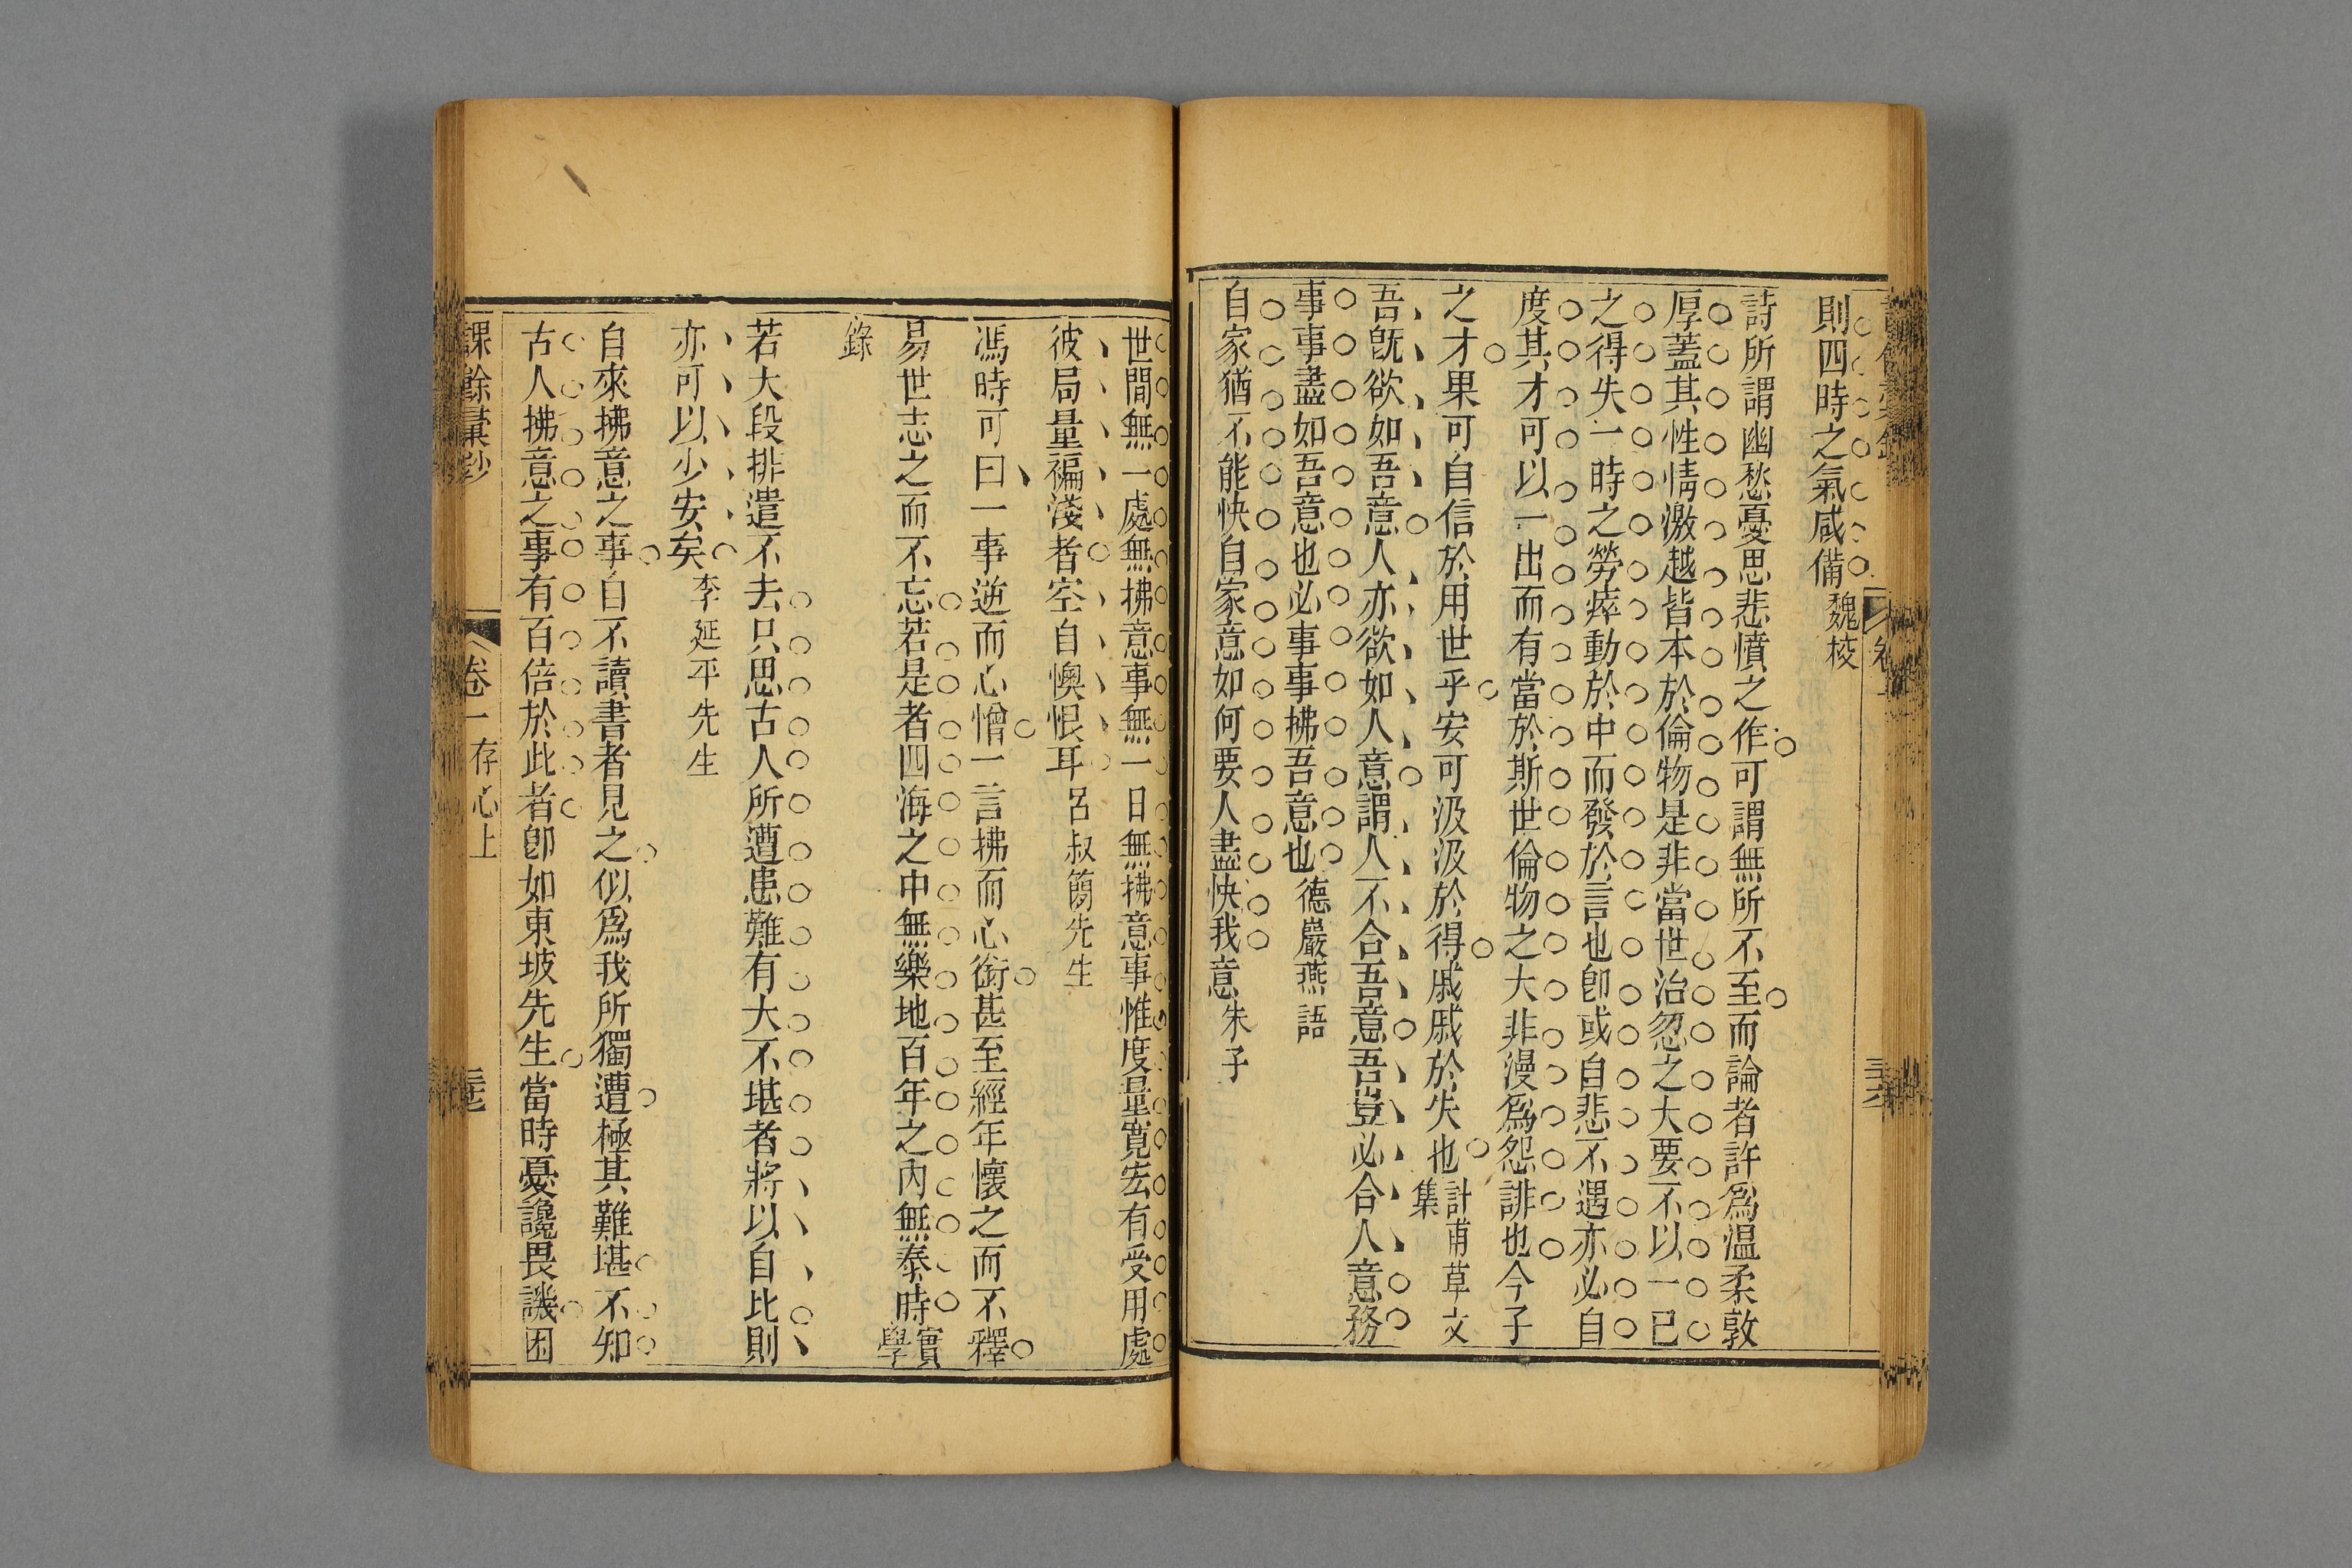 則四時之氣咸備魏校
詩所謂幽愁憂思悲憤之作可謂無所不至而論者許爲温柔敦
厚蓋其性情激越皆本於倫物是非當世治忽之大要不以一己
之得失一時之勞瘁動於中而發於言也卽或自悲不遇亦必自
度其才可以一出而有當於斯世倫物之大非漫爲怨誹也今子
之才果可自信於用世乎安可汲汲於得戚戚於失也計甫草文集
吾旣欲如吾意人亦欲如人意謂人不合吾意吾豈必合人意務
事事盡如吾意也必事事拂吾意也德巖燕語
自家猶不能快自家意如何要人盡快我意朱子
世間無一處無拂意事無一日無拂意事惟度量寬宏有受用處
彼局量褊淺者空自懊恨耳呂叔簡先生
馮時可曰一事逆而心憎一言拂而心銜甚至經年懷之而不釋
易世志之而不忘若是者四海之中無樂地百年之內無泰時實學
錄
若大段排遣不去只思古人所遭患難有大不堪者將以自比則
亦可以少安矣李延平先生
自來拂意之事自不讀書者見之似爲我所獨遭極其難堪不知
古人拂意之事有百倍於此者卽如東坡先生當時憂讒畏譏困
課餘彙鈔 卷一存心上